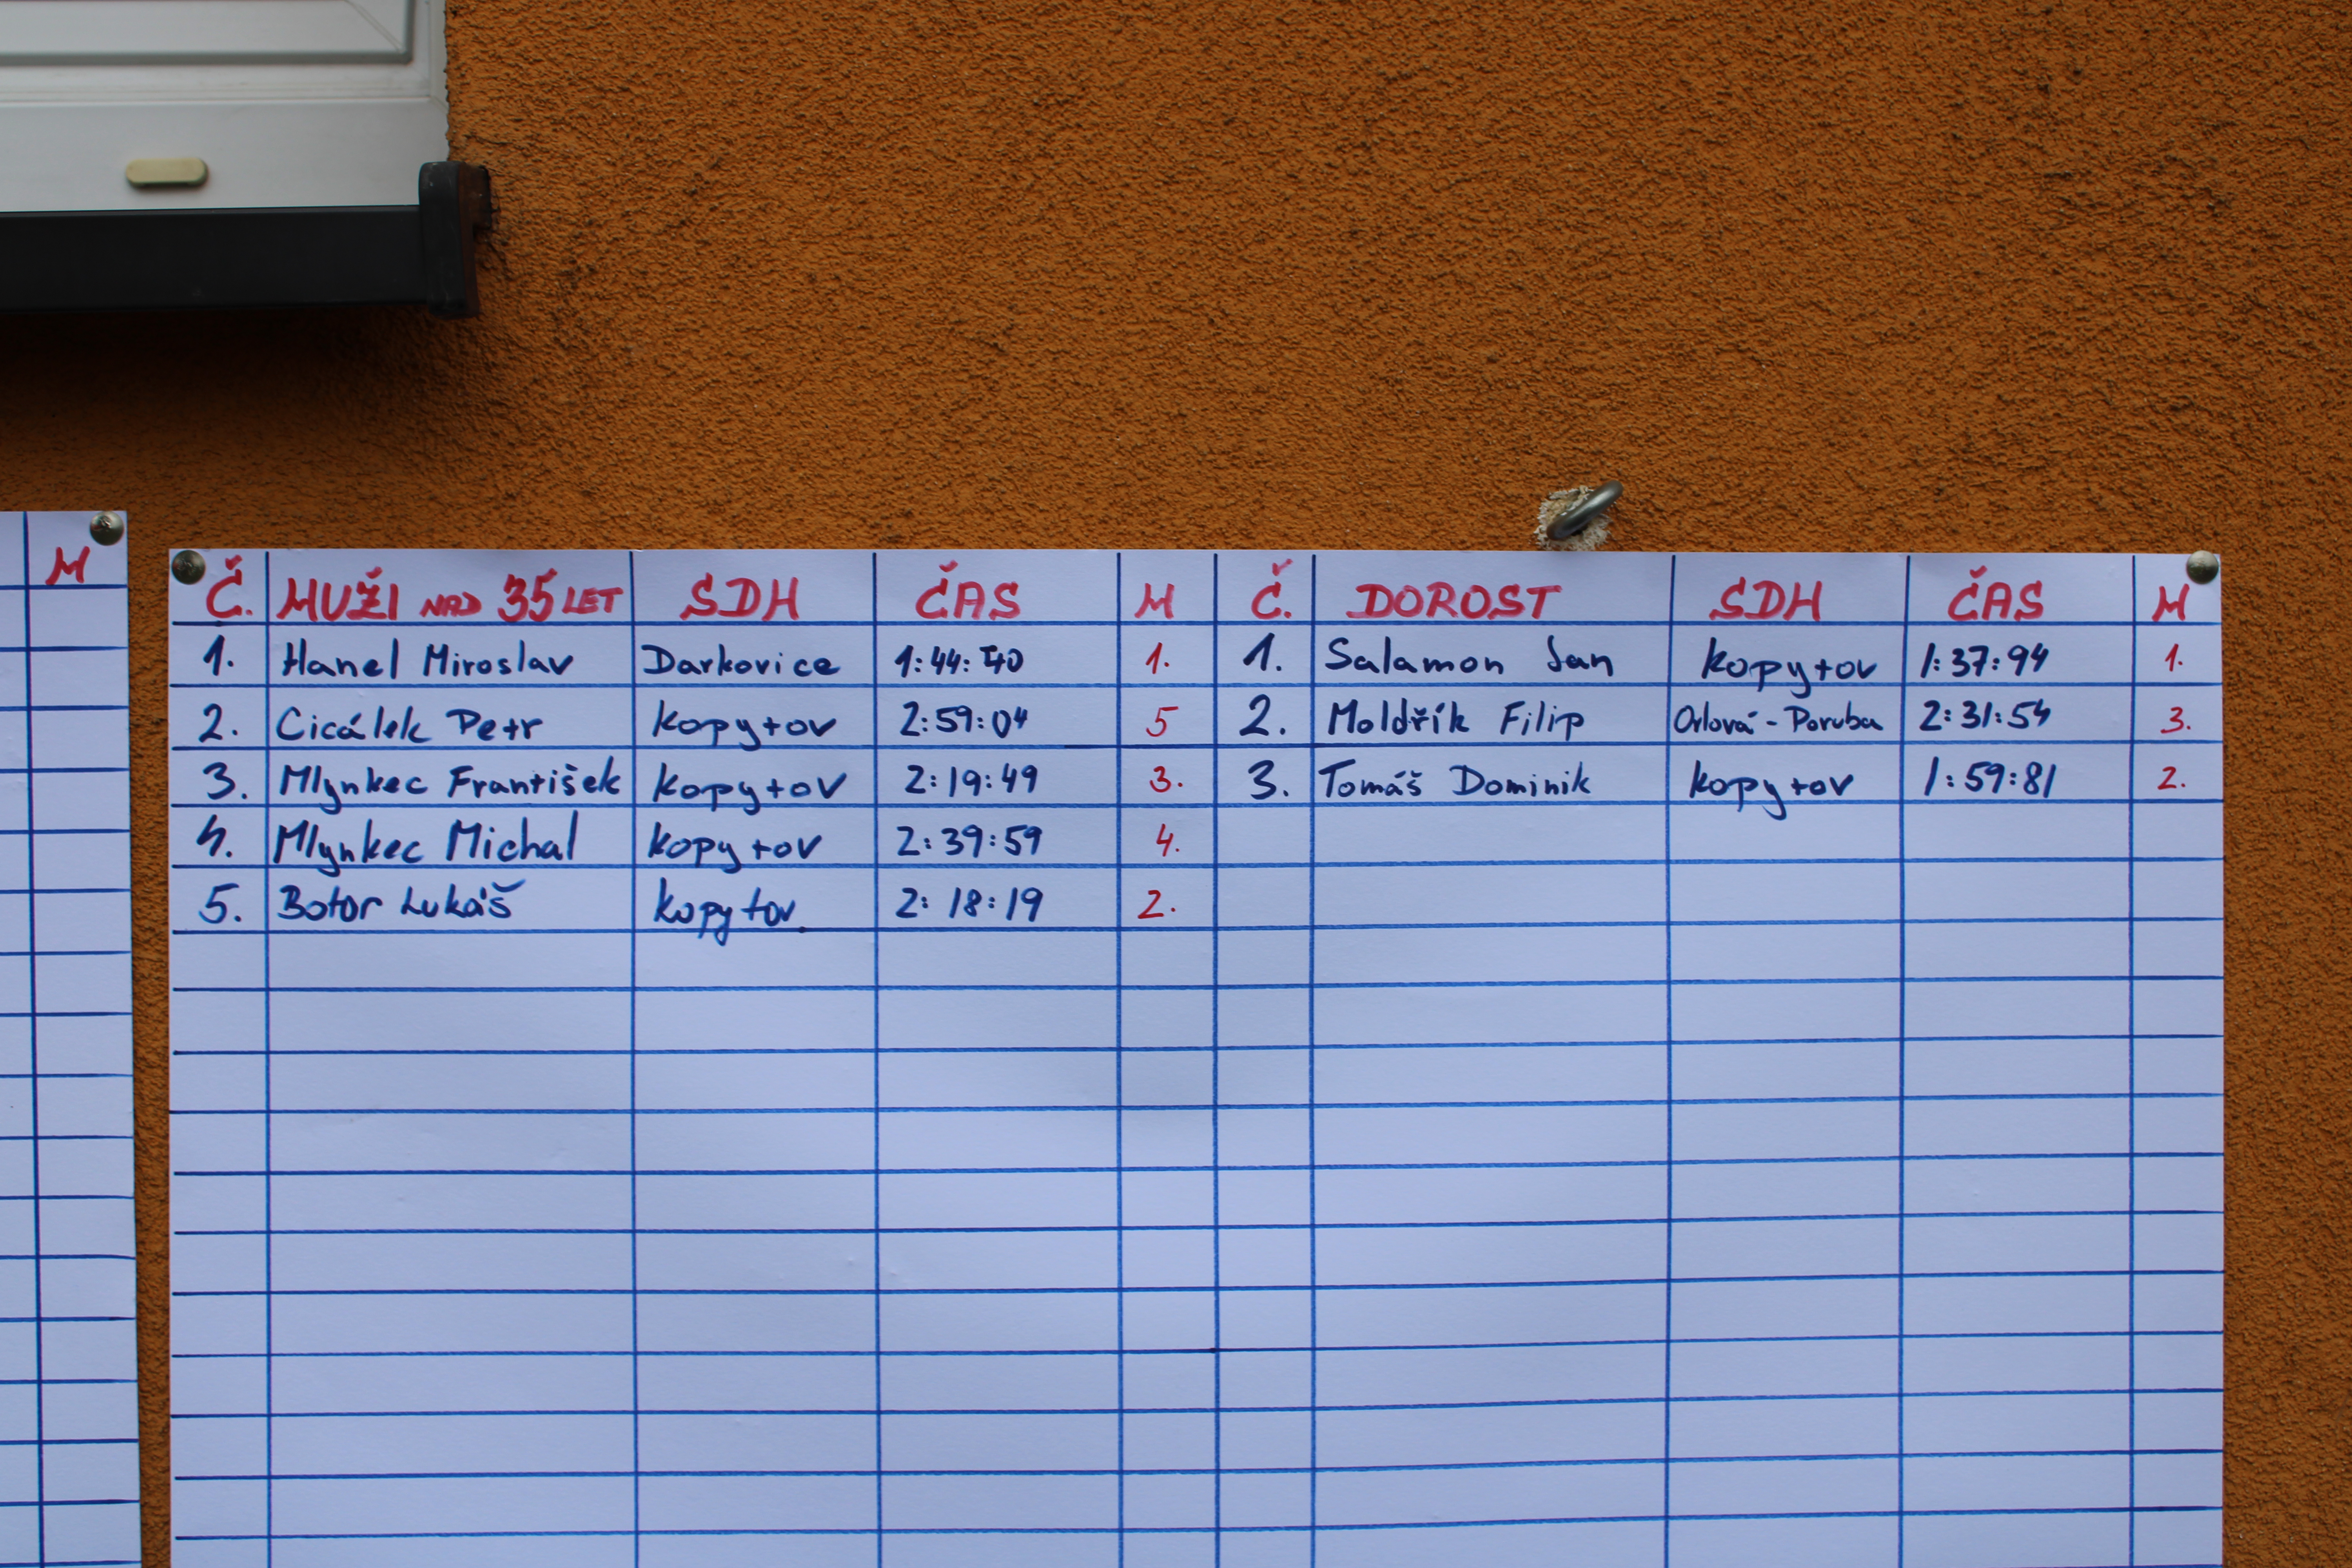 M
Č. MUŽI NAD 35 LET SDH ČAS M Č. DOROST SDH ČAS M
1. Hanel Miroslav Darkovice 1:44:40 1. 1. Salamon Jan Kopytov 1:37:94 1.
2. Cicálek Petr Kopytov 2:59:04 5 2. Moldřík Filip Orlová-Poruba 2:31:54 3.
3. Mlynkec František Kopytov 2:19:49 3. 3. Tomáš Dominik Kopytov 1:59:81 2.
4. Mlynkec Michal Kopytov 2:39:59 4.
5. Botor Lukáš Kopytov 2:18:19 2.